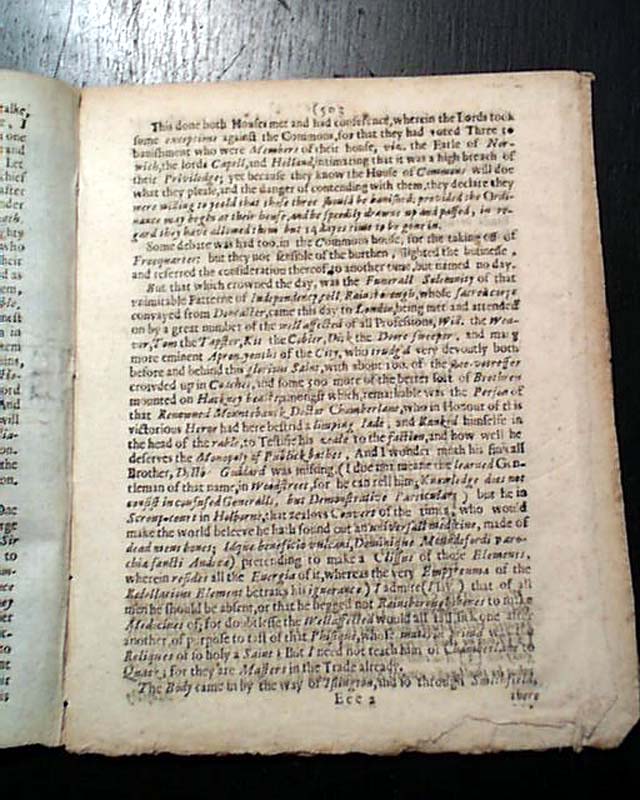 talke,
(503
This done both Houses met and had conference, wherein the Lords took
some exceptions against the Commons, for that they had voted Three to
banishment who were Members of their house, viz. the Earle of Nor-
wich, the lords Capell, and Holland, intimating that it was a high breach of
their Priviledge; yet because they know the House of Commons will doe
what they please, and the danger of contending with them, they declare they
were willing to yeeld that these three should be banished; provided the Ordi-
nance may begin at their house, and be speedily drawne up and passed, in re-
gard they have allowed them but 14 dayes time to be gone in.
Some debate was had too, in the Commons house, for the taking off of
Freequarter: but they not sensible of the burthen, slighted the businesse,
and referred the consideration thereof to another time, but named no day.
But that which crowned the day, was the Funerall Solemnity of that
inimitable Patterne of Independency, coll, Rainsborough, whose sacred corps
convayed from Doncaster, came this day to London, being met and attended
on by a great number of the well affected of all Professions, Will. the Wea-
ver, Tom the Tapster, Kit the Cobler, Dick the Doore sweeper, and many
more eminent Apron youths of the City, who trudg'd very devoutly both
before and behind this glorious Saint, with about 100. of the
crowded up in Coaches, and some 500 more of the better sort of Brethren
mounted on Hackney beasts; amongst which, remarkable was the Person of
that Renowned Mountebank, Doctor Chamberlane, who in Honour of this
victorious Heroe had here bestrid a limping Jade, and Ranked himselfe in
the head of the rable, to Testifie his zeale to the faction, and how well he
deserves the Monopoly of Publick bathes. And I wonder much his small
Brother, Goddard was missing, (I doe not meane the learned Gen-
tleman of that name, in Woodstreet, for he can tell him, Knowledge does not
consist in confused Generalls, but Demonstrative Particulars) but he in
Scroup-court in Holborne, that zealous Convert of the times, who would
make the world beleeve he hath found out an universall medicine, made of
dead mens bones; Idque beneficio vulcani, Dominique paro-
chia sancti Andreæ) pretending to make a Clissus of those Elements,
wherein resides all the Energia of it, whereas the very Empyreuma of the
Rebellarious Element betraies his ignorance) I admire (I say) that of all
men he should be absent, or that he begged not Rainsborough bones to make
Medicines of, for doubtlesse the Well affected would all fall sick one after
another, of purpose to tast of that Physique, whose
Reliques of so holy a Saint: But I need not teach him or Chamberlane to
Quack; for they are Masters in the Trade already.
The Body came in by the way of Islington, and so through Smithfield,
Eee 2
there